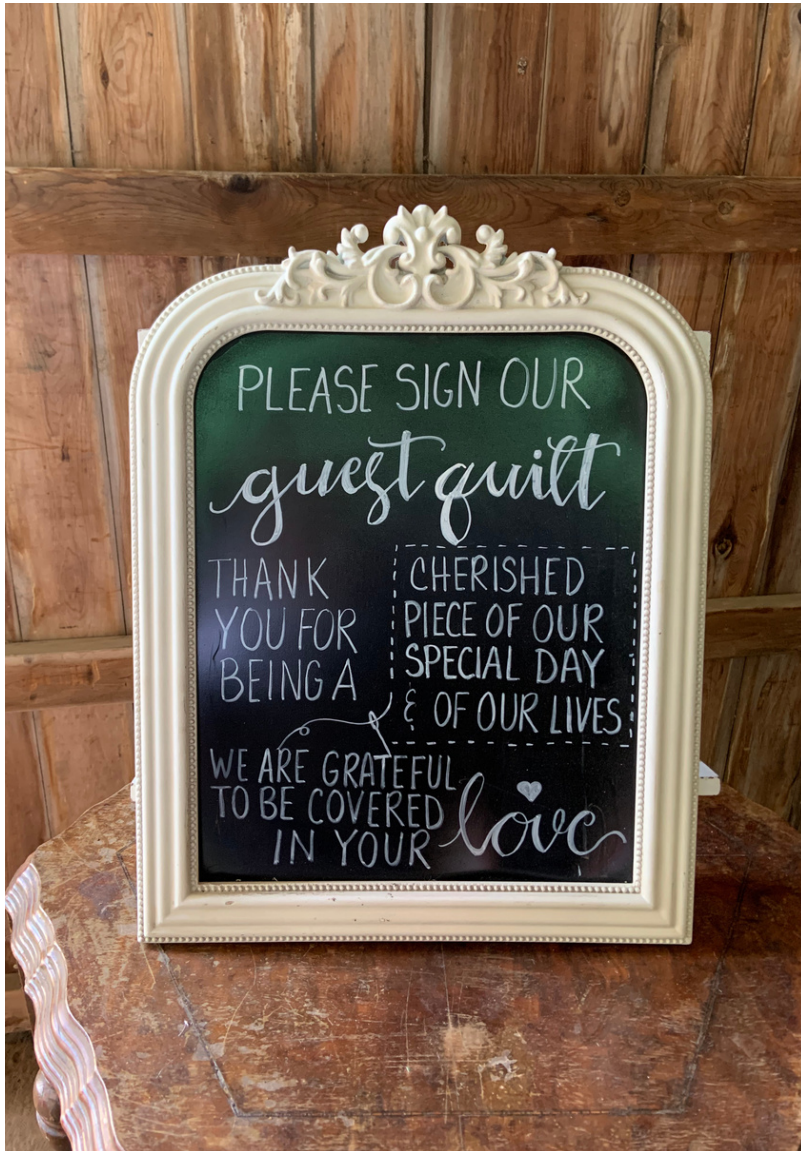 PLEASE SIGN OUR
guest quilt
THANK
YOU FOR
BEING A
CHERISHED
PIECE OF OUR
SPECIAL DAY
& OF OUR LIVES
WE ARE GRATEFUL
TO BE COVERED
IN YOUR
love